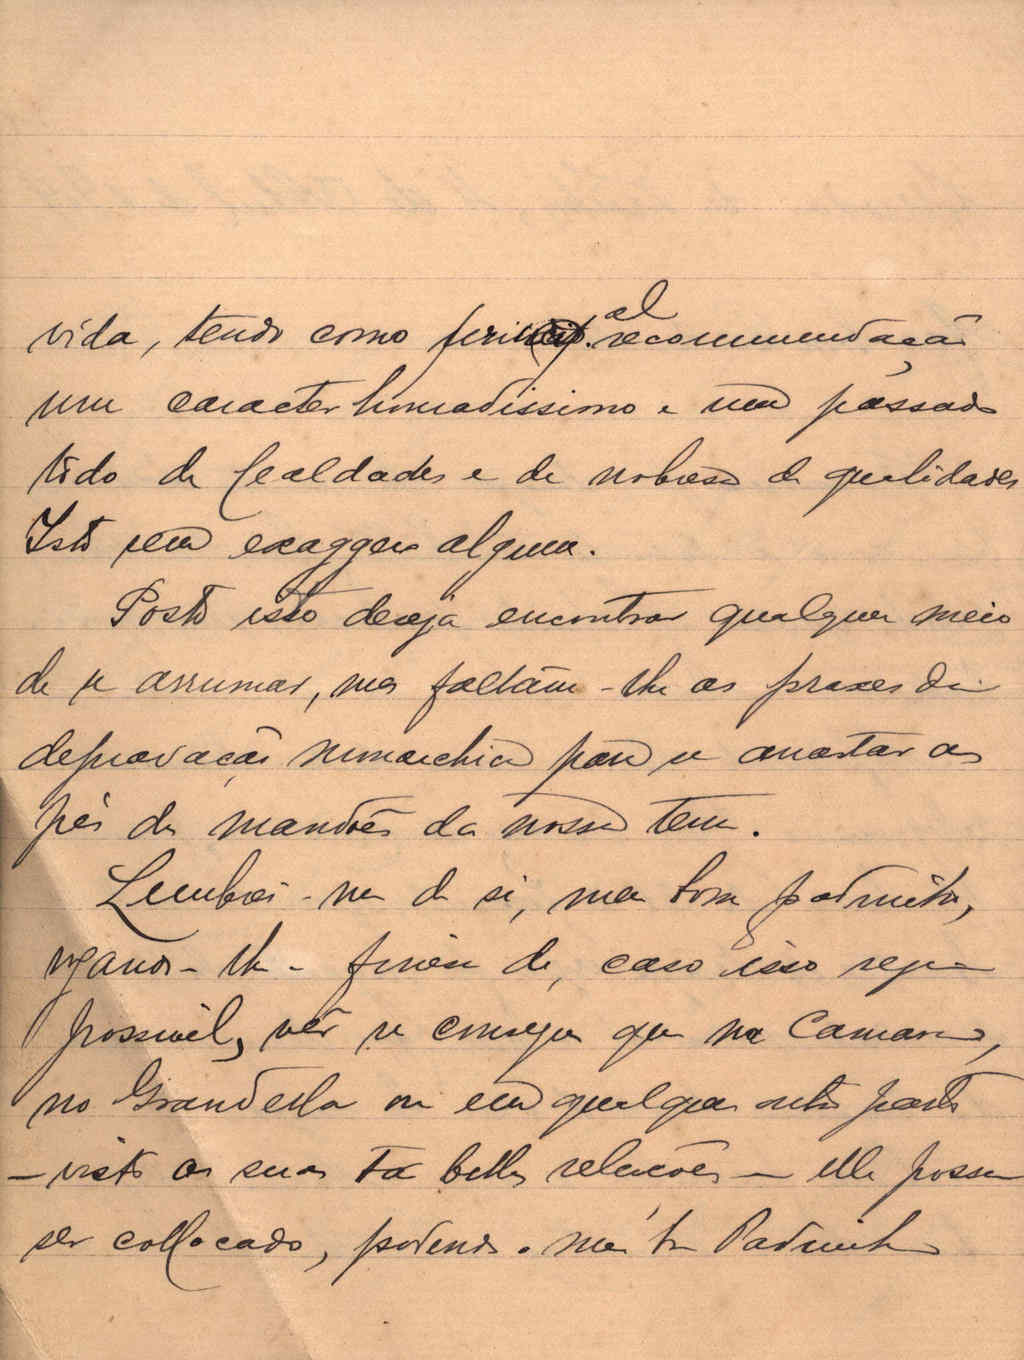 vida, tendo como principal recommendação
um caracter honradissimo e um passado
tido de lealdades e de nobresa de qualidades
Isto sem exaggero algum.
Posto isto deseja encontrar qualquer meio
de se arrumar, mas faltam-lhe as praxes da
depravação monarchica para se arrastar aos
pés dos mandões da nossa terra.
Lembrei-me de si, meu bom padrinho,
rogando-lhe a finesa de, caso isso seja
possivel, vêr se consegue que na Camara,
no Grandella ou em qualquer outra parte
- visto as suas tão bellas relações - elle possa
ser collocado, podendo o meu Padrinho